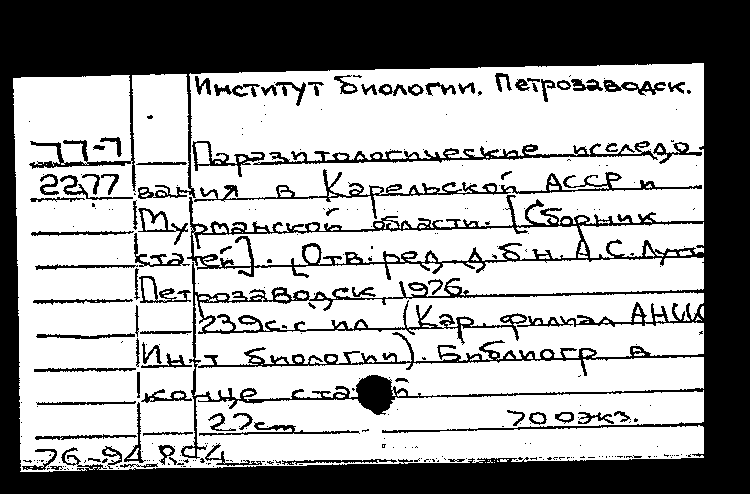 Институт биологии. Петрозаводск.
77-7 Паразитологические исследо-
2277 вания в Карельской АССР и
Мурманской области. [Сборник
статей]. [Отв. ред. д.б.н. А.С.
Петрозаводск, 1976.
239с. с ил. (Кар. филиал АН
Ин-т биологии). Библиогр в
конце
27см. 700экз.
76-94 894